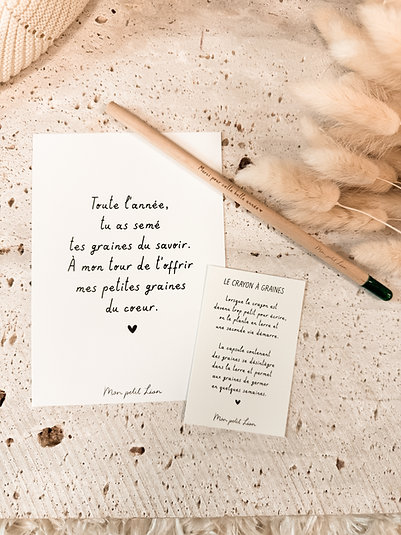 Merci pour cette belle année
Toute l'année,
tu as semé
tes graines du savoir.
À mon tour de t'offrir
mes petites graines
du coeur.
Mon petit Léon
LE CRAYON À GRAINES
Lorsque le crayon est
devenu trop petit pour écrire,
on le plante en terre et
une seconde vie démarre.
La capsule contenant
des graines se désintègre
dans la terre et permet
aux graines de germer
en quelques semaines.
Mon petit Léon